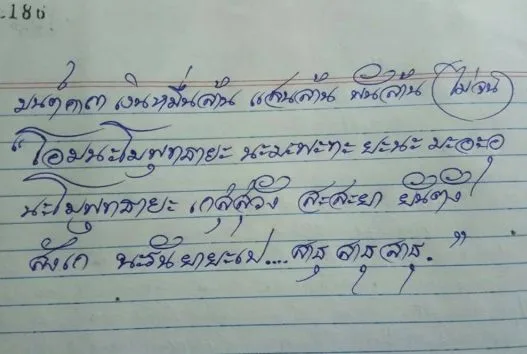 -186
มนต์คาถา เงินหมื่นล้าน แสนล้าน พันล้าน (ไม่จน)
"โอมนะโมพุทธายะ นะมะพะทะ ยะนะ มะอะอุ
นะโมพุทธายะ เกสุสุวัง สะสะยา ยันตัง
สังเถ นะรันยายะเป....สาธุ สาธุ สาธุ."